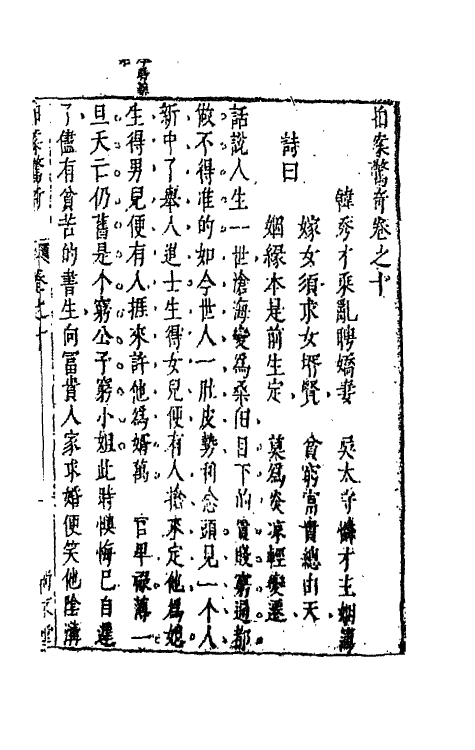 拍案驚奇卷之十
韓秀才乘亂聘嬌妻　吳太守憐才主姻簿
詩曰
嫁女須求女壻賢　貧窮富貴總由天
姻緣本是前生定　莫爲炎凉輕變遷
話說人生一世滄海變爲桑田目下的貴賤窮通都
做不得准的如今世人一肚皮勢利念頭見一个人
新中了舉人進士生得女兒便有人搶來定他爲媳
生得男兒便有人捱來許他爲婿萬一官卑祿薄一
旦夭亡仍舊是个窮公子窮小姐此時懊悔已自遲
了儘有貧苦的書生向冨貴人家求婚便笑他陰溝
拍案驚奇　卷之十　一　尚友堂